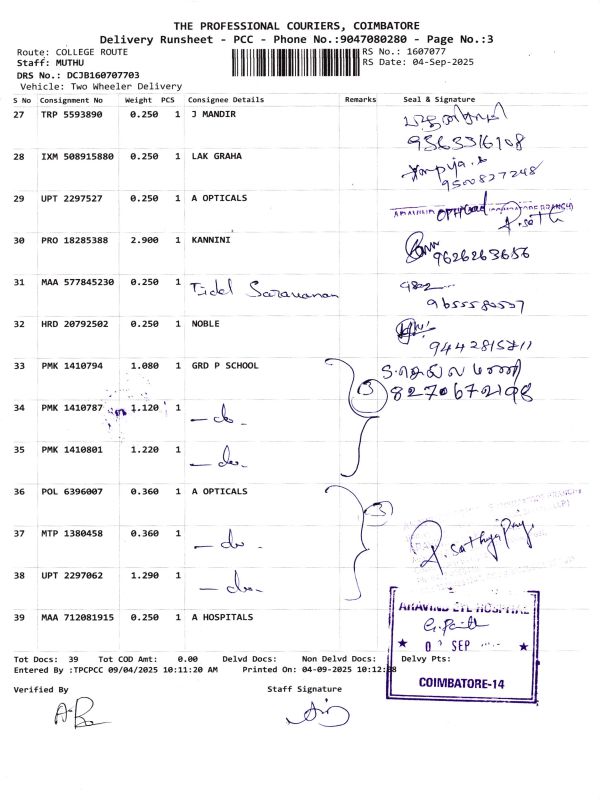 THE PROFESSIONAL COURIERS, COIMBATORE
Delivery Runsheet - PCC - Phone No.:9047080280 - Page No.:3
Route: COLLEGE ROUTE RS No.: 1607077
Staff: MUTHU RS Date: 04-Sep-2025
DRS No.: DCJB160707703
Vehicle: Two Wheeler Delivery
S No Consignment No Weight PCS Consignee Details Remarks Seal & Signature
27 TRP 5593890 0.250 1 J MANDIR
9363316108
28 IXM 508915880 0.250 1 LAK GRAHA
9500827248
29 UPT 2297527 0.250 1 A OPTICALS
30 PRO 18285388 2.900 1 KANNINI
9626263656
31 MAA 577845230 0.250 1 Tidel Saravanan
32 HRD 20792502 0.250 1 NOBLE
33 PMK 1410794 1.080 1 GRD P SCHOOL
3 8270672198
34 PMK 1410787 1.120 1 — do.
35 PMK 1410801 1.220 1 — do.
36 POL 6396007 0.360 1 A OPTICALS
3
37 MTP 1380458 0.360 1 — do.
38 UPT 2297062 1.290 1 — do.
39 MAA 712081915 0.250 1 A HOSPITALS
ARAVIND EYE HOSPITAL
SEP
COIMBATORE-14
Tot Docs: 39 Tot COD Amt: 0.00 Delvd Docs: Non Delvd Docs: Delvy Pts:
Entered By :TPCPCC 09/04/2025 10:11:20 AM Printed On: 04-09-2025 10:12:
Verified By Staff Signature